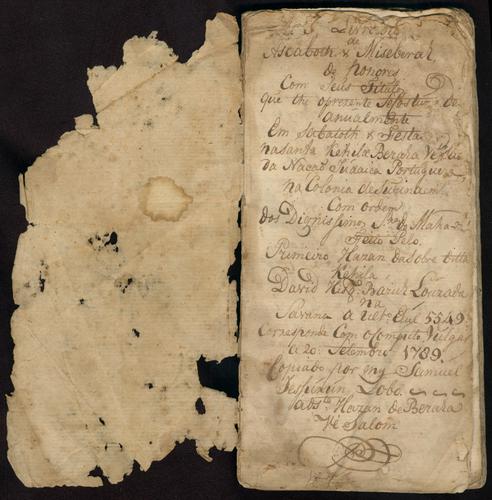 Livro de
Ascaboth & Miseberah
de
honores
Com Seus Titulos
que the oprezente
anualmente
Em Sabatoth & Festa
na Santa Kehila Beraha Ve
da Nacaõ Judaica Portugueza
na Colonia de
Com ordem
dos Dignissimos Sres do Mahamad
Feito Pelo
Primeiro Hazan da Sobre ditta
Kehila
David Baruh Louzada
na
Savana a Elul 5549
Corresponde Com o Computo Vulgar
a 20: Setembro 1789.
Copiado por my Samuel
Lobo.
Hazan de Beraha
Ve Salom